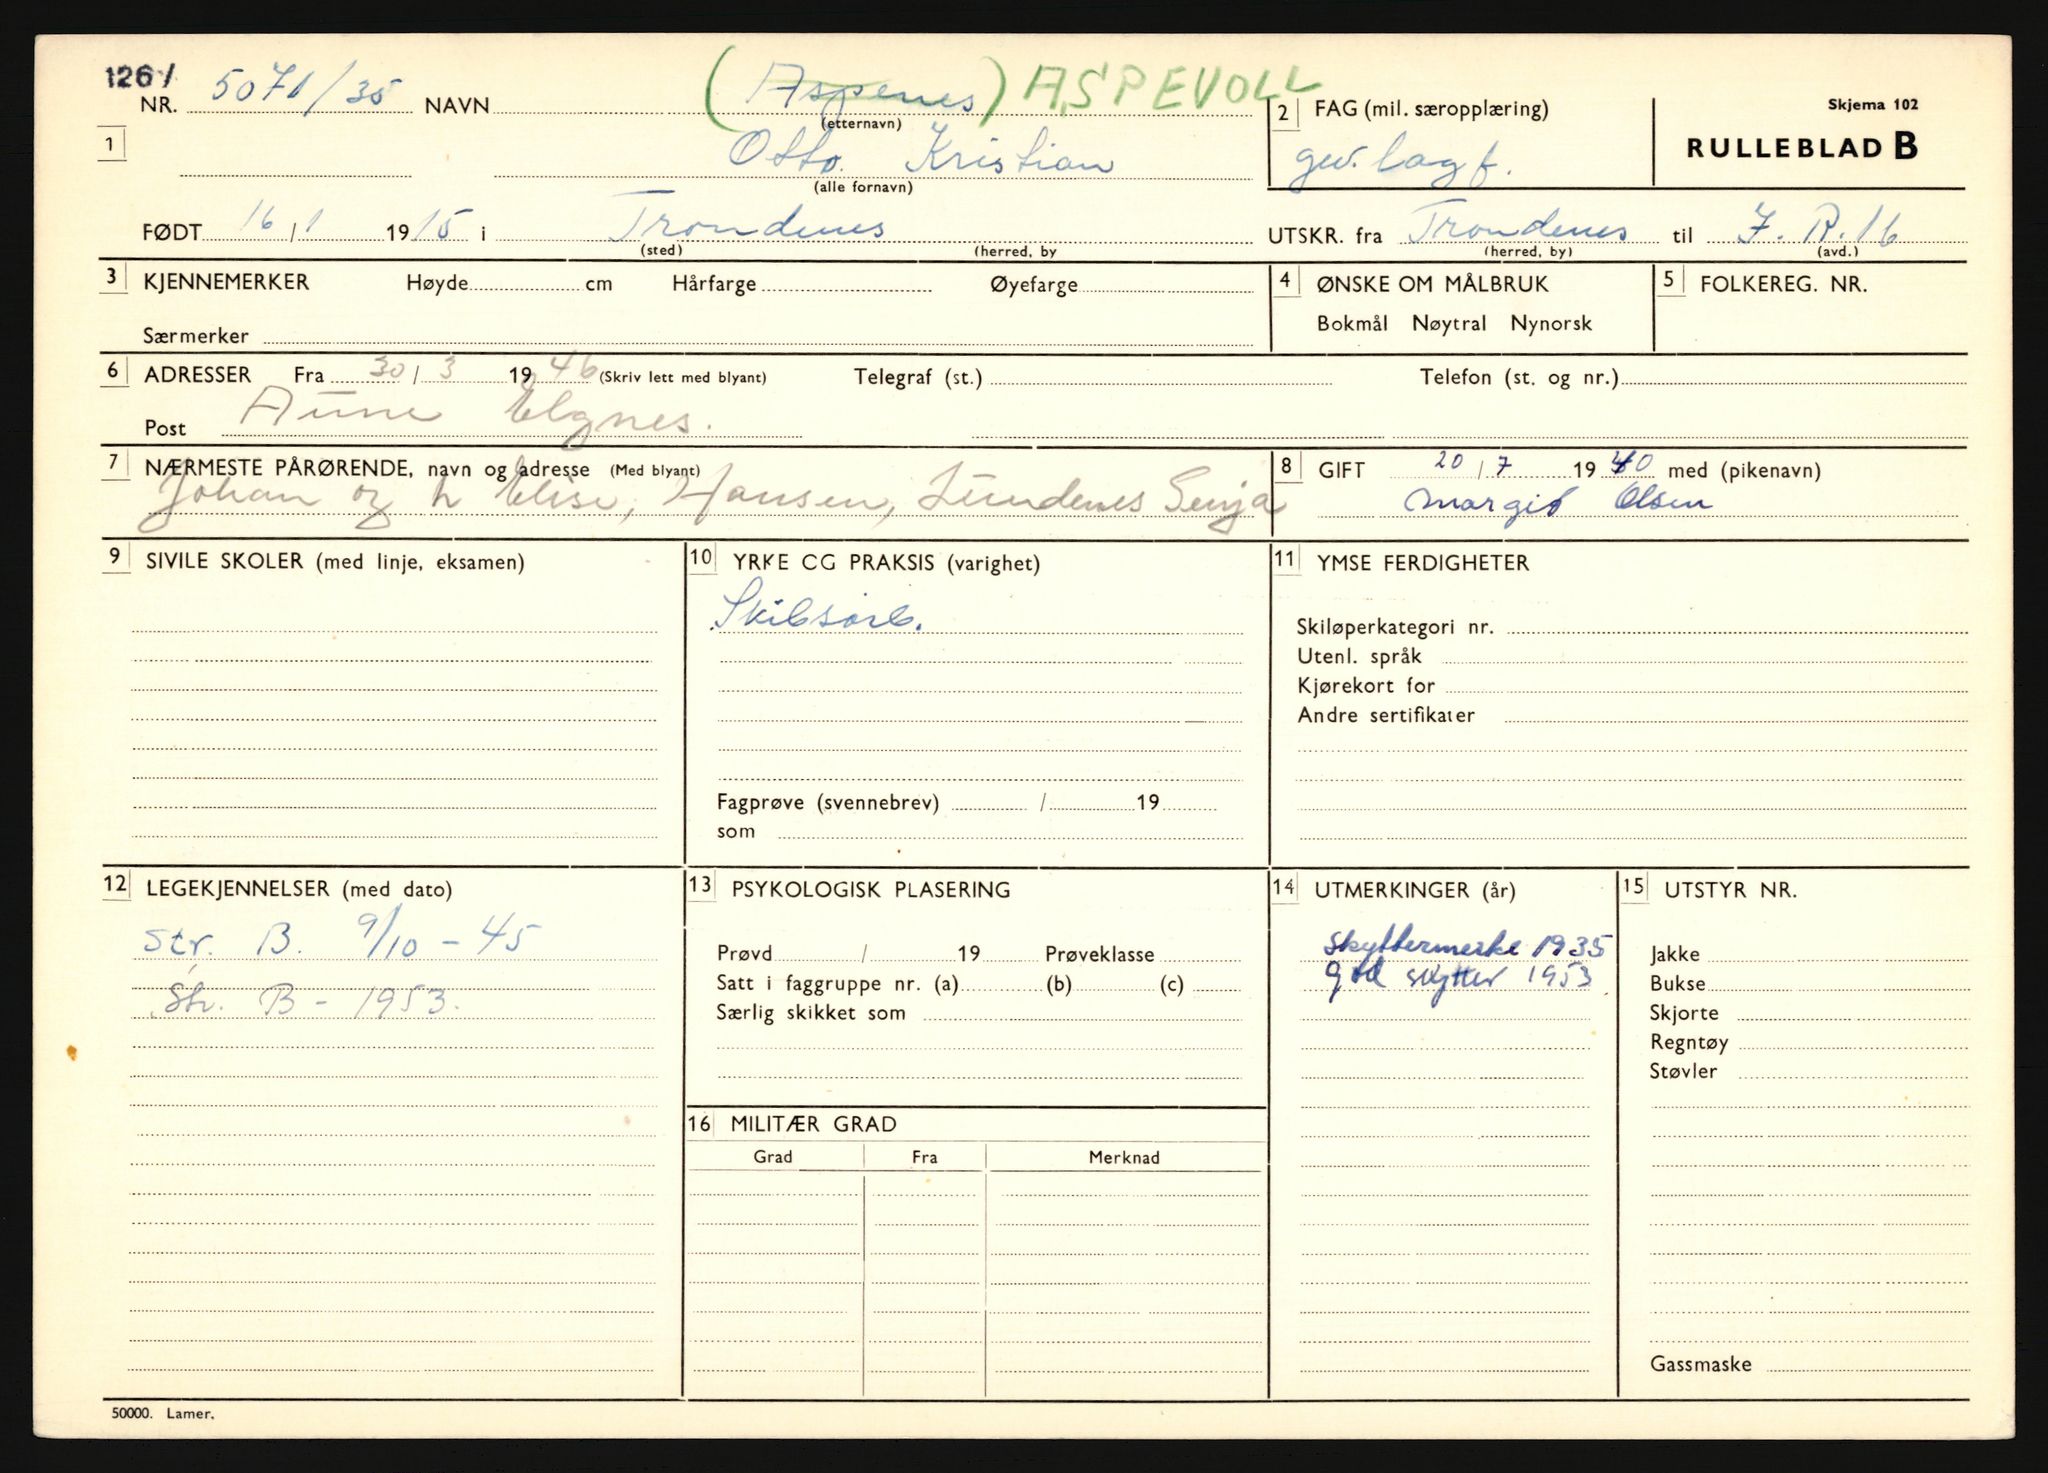 1261
NR. 5071/35 NAVN (Aspenes) ASPEVOLL
(etternavn)
1
Otto Kristian
(alle fornavn)
2 FAG (mil. særopplæring)
gev. lagf.
Skjema 102
RULLEBLAD B
FØDT 16/1 1915 i Trondenes
(sted) (herred, by
UTSKR. fra Trondenes til I. R. 16
(herred, by) (avd.)
3 KJENNEMERKER Høyde cm Hårfarge Øyefarge
Særmerker
4 ØNSKE OM MÅLBRUK
Bokmål Nøytral Nynorsk
5 FOLKEREG. NR.
6 ADRESSER Fra 30/3 1946 (Skriv lett med blyant) Telegraf (st.) Telefon (st. og nr.)
Post Aune Elgnes.
7 NÆRMESTE PÅRØRENDE, navn og adresse (Med blyant)
Johan og h Elise, Hansen, Lundenes Senja
8 GIFT 20/7 1940 med (pikenavn)
Margit Olsen
9 SIVILE SKOLER (med linje, eksamen)
10 YRKE CG PRAKSIS (varighet)
Skibsarb.
Fagprøve (svennebrev) / 19
som
11 YMSE FERDIGHETER
Skiløperkategori nr.
Utenl. språk
Kjørekort for
Andre sertifikater
12 LEGEKJENNELSER (med dato)
Str. B. 9/10 - 45
Str. B - 1953.
13 PSYKOLOGISK PLASERING
Prøvd / 19 Prøveklasse
Satt i faggruppe nr. (a) (b) (c)
Særlig skikket som
14 UTMERKINGER (år)
Skyttermerke 1935
God skytter 1953
15 UTSTYR NR.
Jakke
Bukse
Skjorte
Regntøy
Støvler
Gassmaske
16 MILITÆR GRAD
Grad Fra Merknad
50000. Lamer.